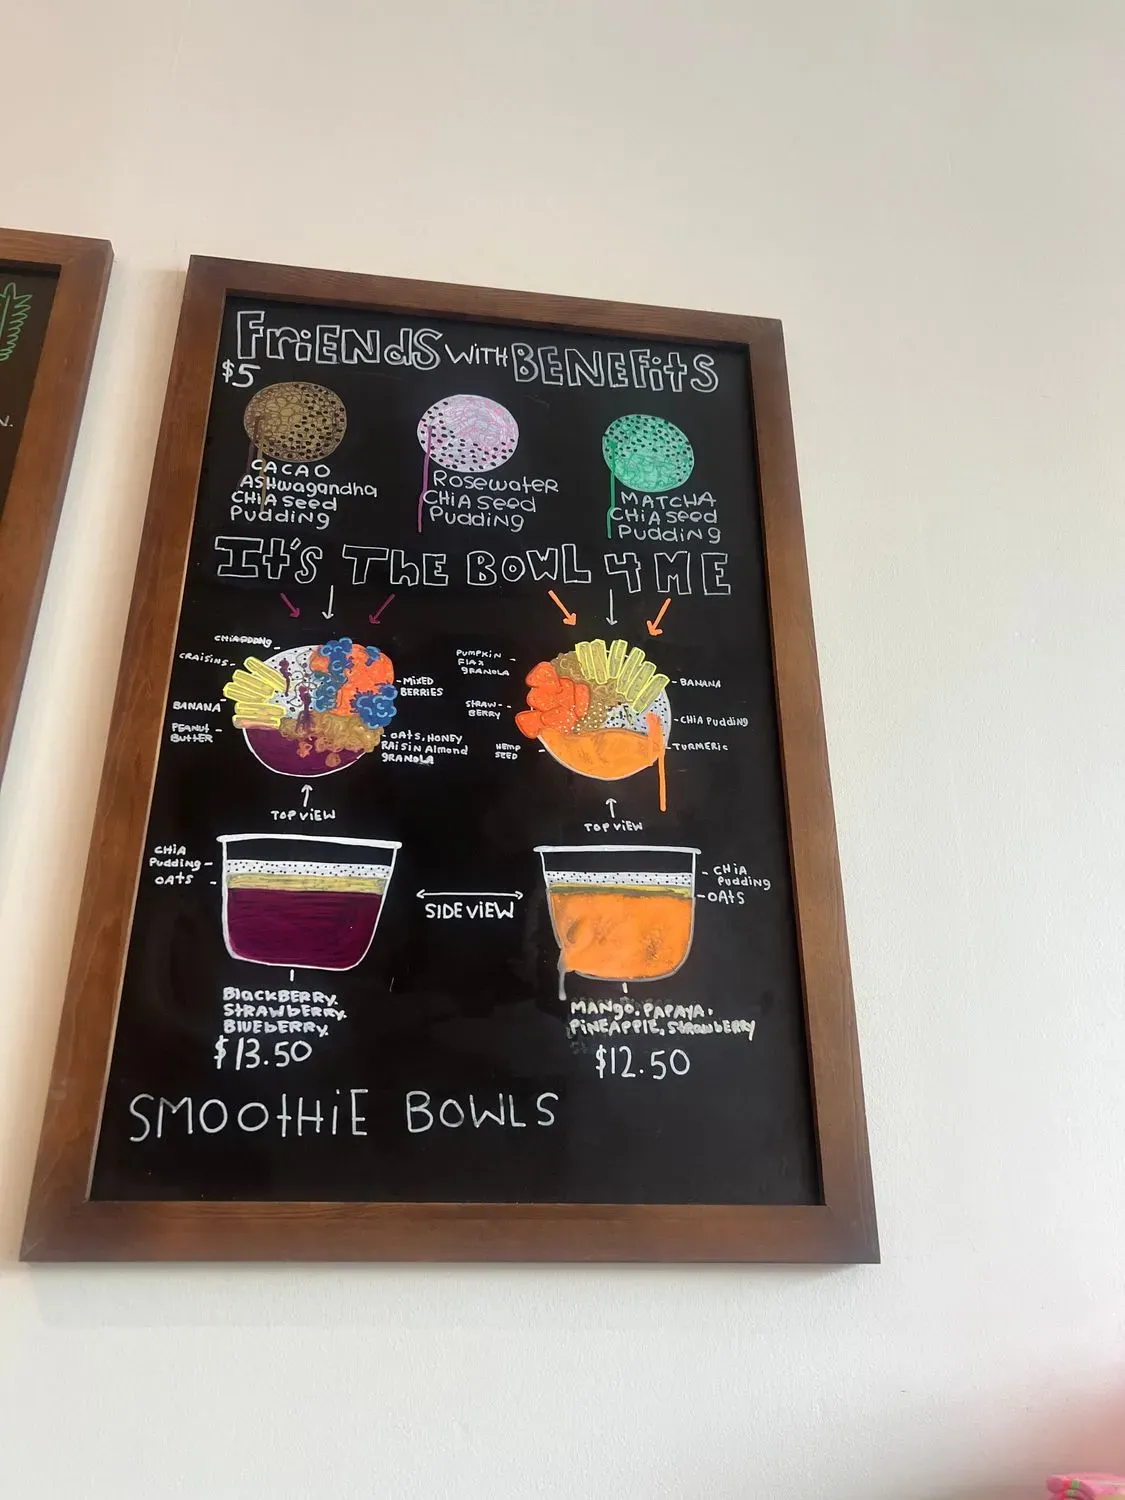 N.
FRiENdS WITH BENEFitS
$5
CACAO
ASHwagandha
CHiA Seed
PuddiNG
Rosewater
CHiA Seed
PuddiNG
MATCHA
CHiA Seed
PuddiNG
It'S THE BOWL 4 ME
CRAiSiNS
BANANA
PEANUt
BUTTER
MiXED
BERRIES
OATS, HONEY
RAiSiN Almond
GRANOLA
TOP ViEW
PUMPKiN
FLAX
GRANOLA
STRAW-
BERRY
HEMP
SEED
BANANA
CHiA PUddiNG
TURMERiC
TOP ViEW
CHiA
Pudding
OATS
SIDE ViEW
CHiA
PuddiNG
OATS
BlackBERRY.
StRAWbERRY.
BlUEbERRY.
$13.50
MANgo. PAPAYA.
PiNEAPPlE, StRAWbERRY
$12.50
SMOOtHiE BOWLS